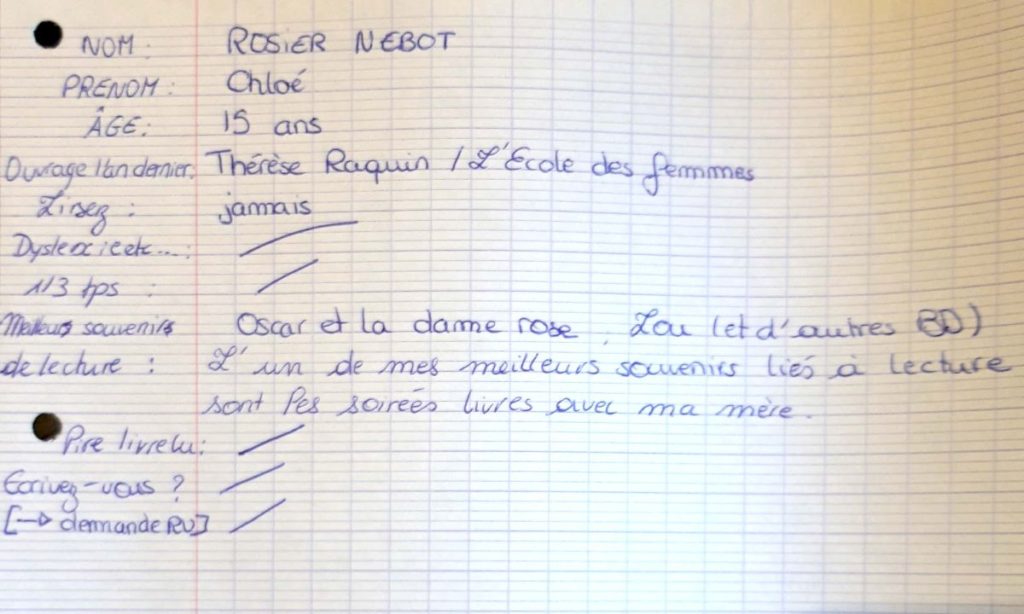 NOM : ROSIER NEBOT
PRENOM : Chloé
ÂGE : 15 ans
Ouvrage l'an dernier : Thérèse Raquin / L'Ecole des femmes
Lisez : jamais
Dyslexie etc... :
1/3 tps :
Meilleurs souvenirs Oscar et la dame rose, Lou (et d'autres BD)
de lecture : L'un de mes meilleurs souvenirs liés à lecture
sont les soireés livres avec ma mère.
Pire livre lu :
Ecrivez-vous ?
[→ demande RV]